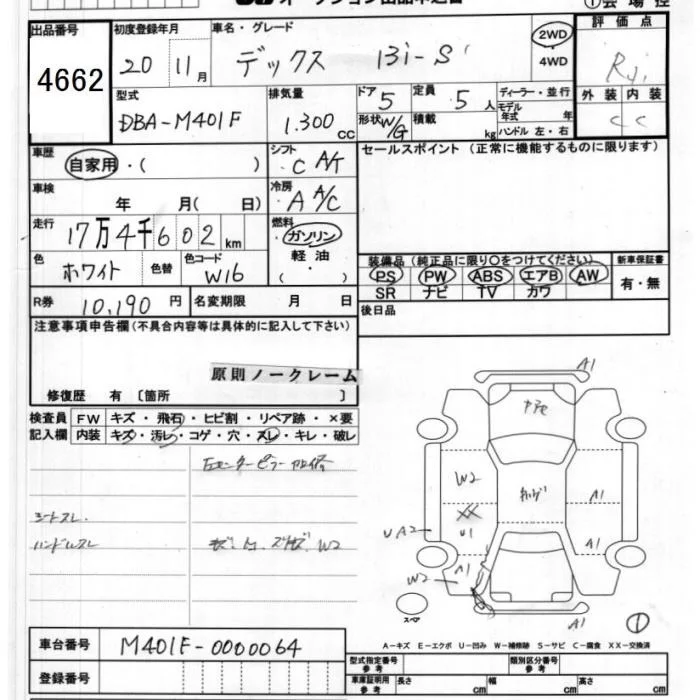 出品番号 4662
初度登録年月 20 11月
車名・グレード デックス 13i-S
2WD
4WD
評価点 R
外装 C 内装 C
型式 DBA-M401F
排気量 1.300 CC
ドア 5
定員 5人
形状 W/G
積載 kg
ディーラー・並行
モデル年式 年
ハンドル 左・右
車歴 自家用・( )
シフト C A/T
セールスポイント(正常に機能するものに限ります)
車検 年 月( 日)
冷房 A A/C
走行 17万4千602km
燃料 ガソリン
軽油
・
( )
色 ホワイト 色替
色コード W16
装備品(純正品に限り○をつけてください)
PS PW ABS エアB AW
SR ナビ TV カワ
新車保証書
有・無
R券 10,190円
名変期限 月 日
後日品
注意事項申告欄(不具合内容等は具体的に記入して下さい)
原則ノークレーム
修復歴 有〔箇所 〕
検査員記入欄
FW キズ・飛石・ヒビ割・リペア跡・×要
内装 キズ・汚レ・コゲ・穴・スレ・キレ・破レ
シートスレ
ハンドルスレ W2
A1
W2
A1
XX
U1
UA2
A1
A1
W2
A1
スペア
1
A-キズ E-エクボ U-凹み W-補修跡 S-サビ C-腐食 XX-交換済
車台番号 M401F-0000064
登録番号
型式指定番号 参考
類別区分番号 参考
車庫証明用 参考
長さ cm
幅 cm
高さ cm